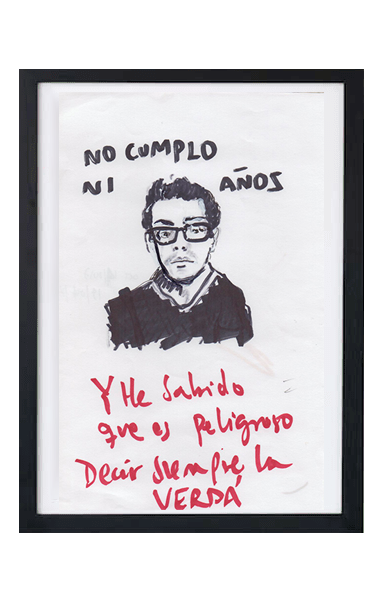 NO CUMPLO
NI AÑOS
Y He Sabido
que es Peligroso
Decir siempre la
VERDÁ